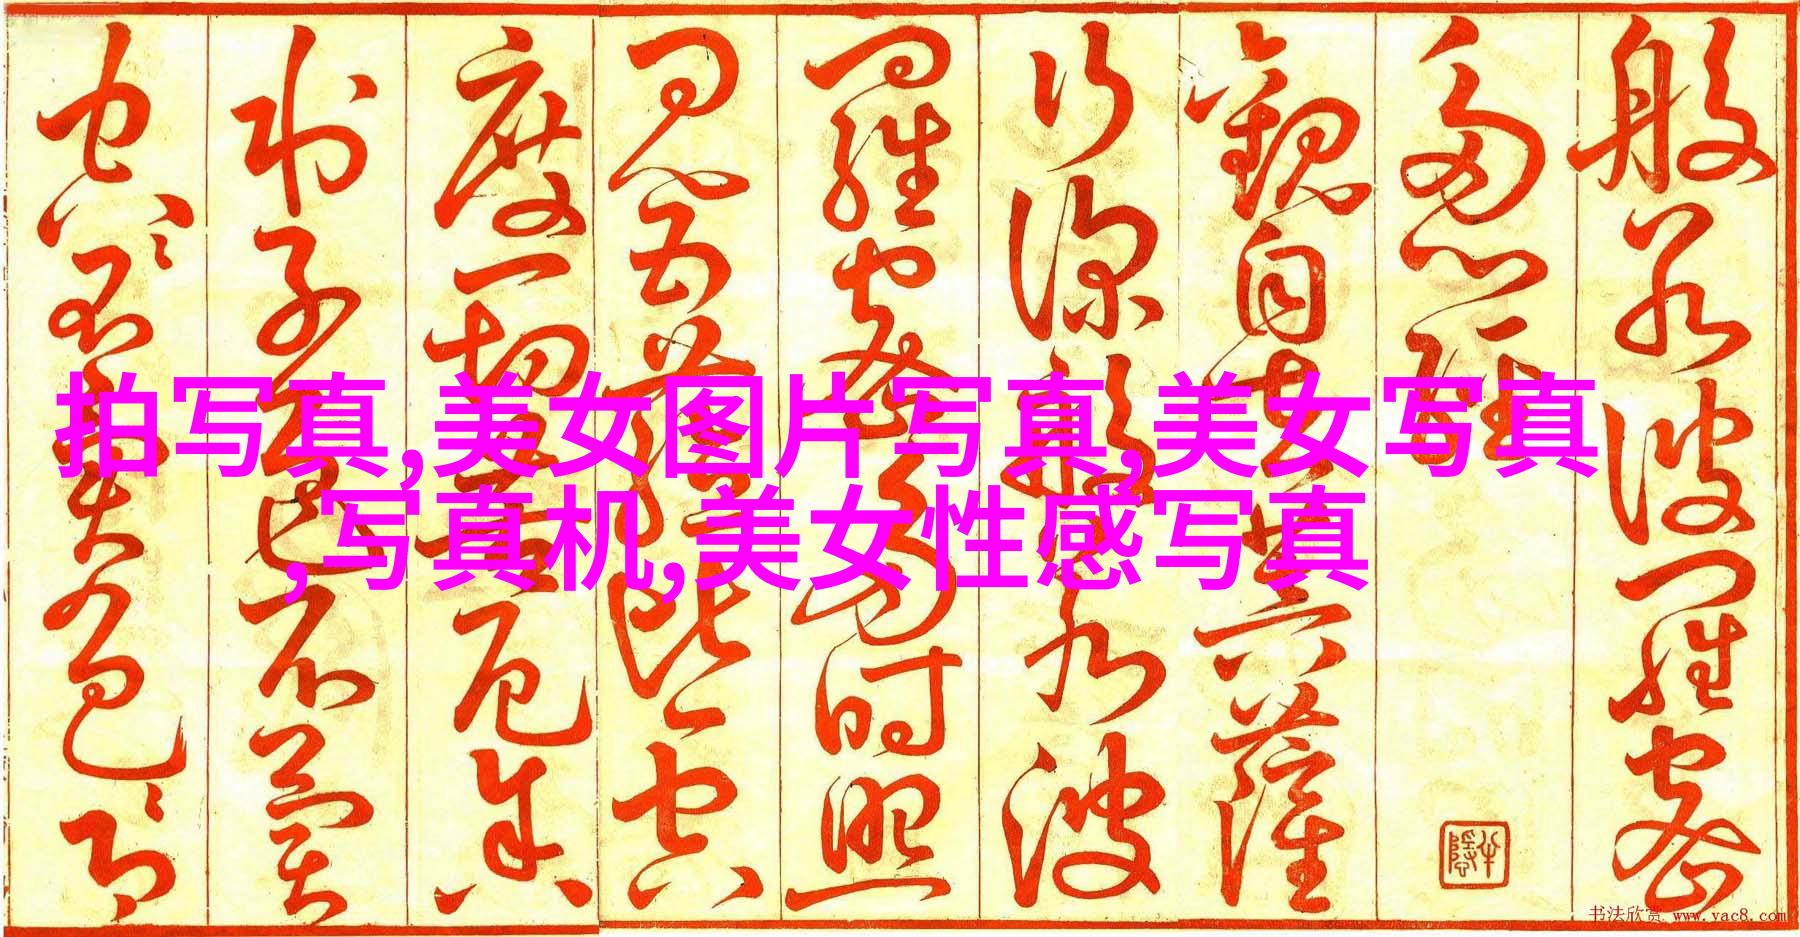 般若波羅蜜
多心經
觀自在菩薩
行深般若波
羅蜜多時照
見五蘊皆空
度一切苦厄舍
利子色不異
空〻不異色〻即
拍写真,美女图片写真,美女写真
,写真机,美女性感写真
半隐
书法欣赏 www.yac8.com